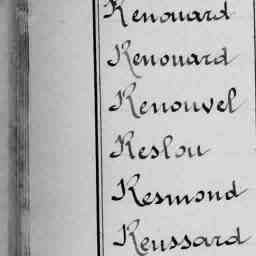 Renouard
Renouard
Renouvel
Reslou
Resmond
Reussard